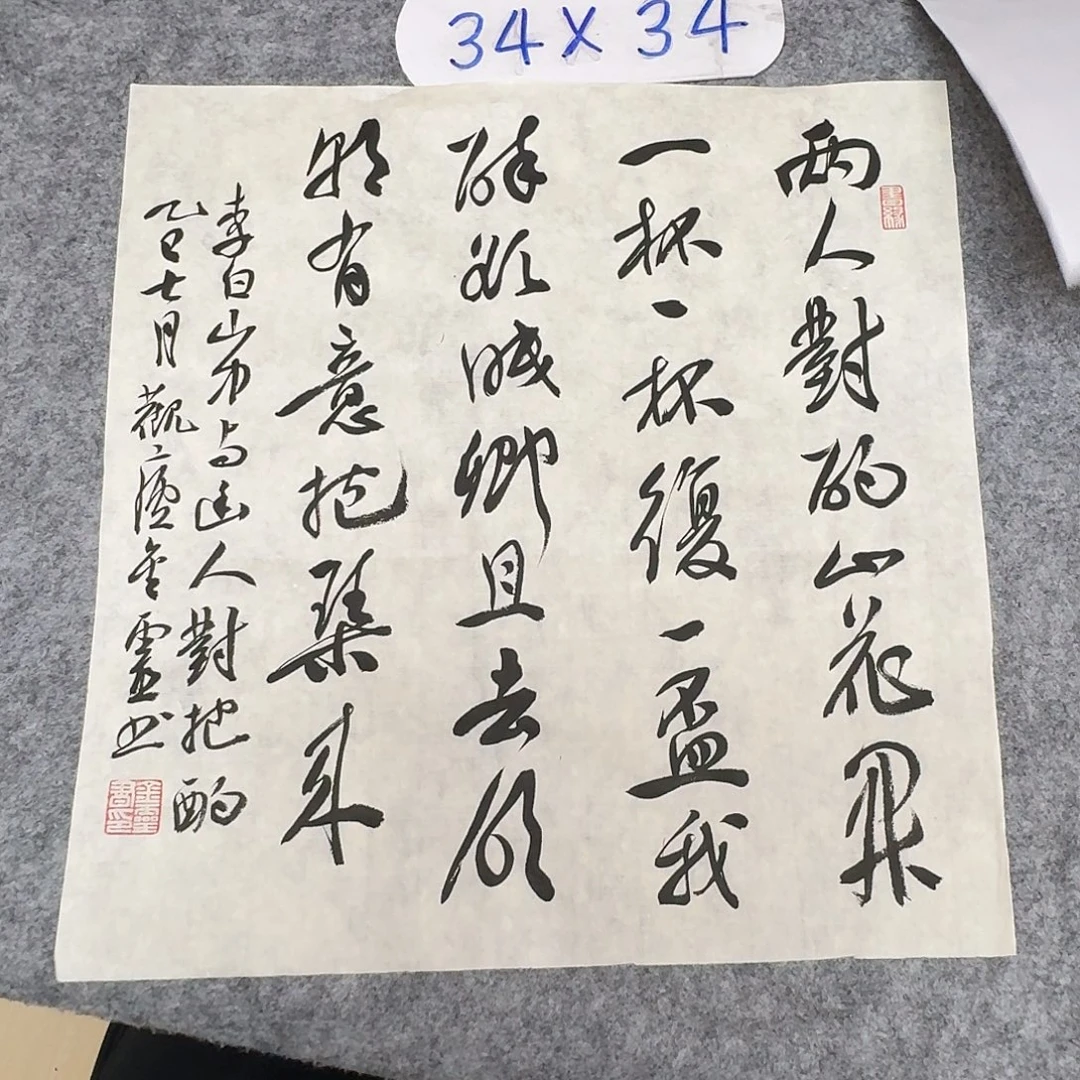 34 X 34
兩人對酌山花開
一杯一杯復一盃我
醉欲眠卿且去明
朝有意抱琴來
李白山中与幽人對把酌
乙巳七月觀金霊书